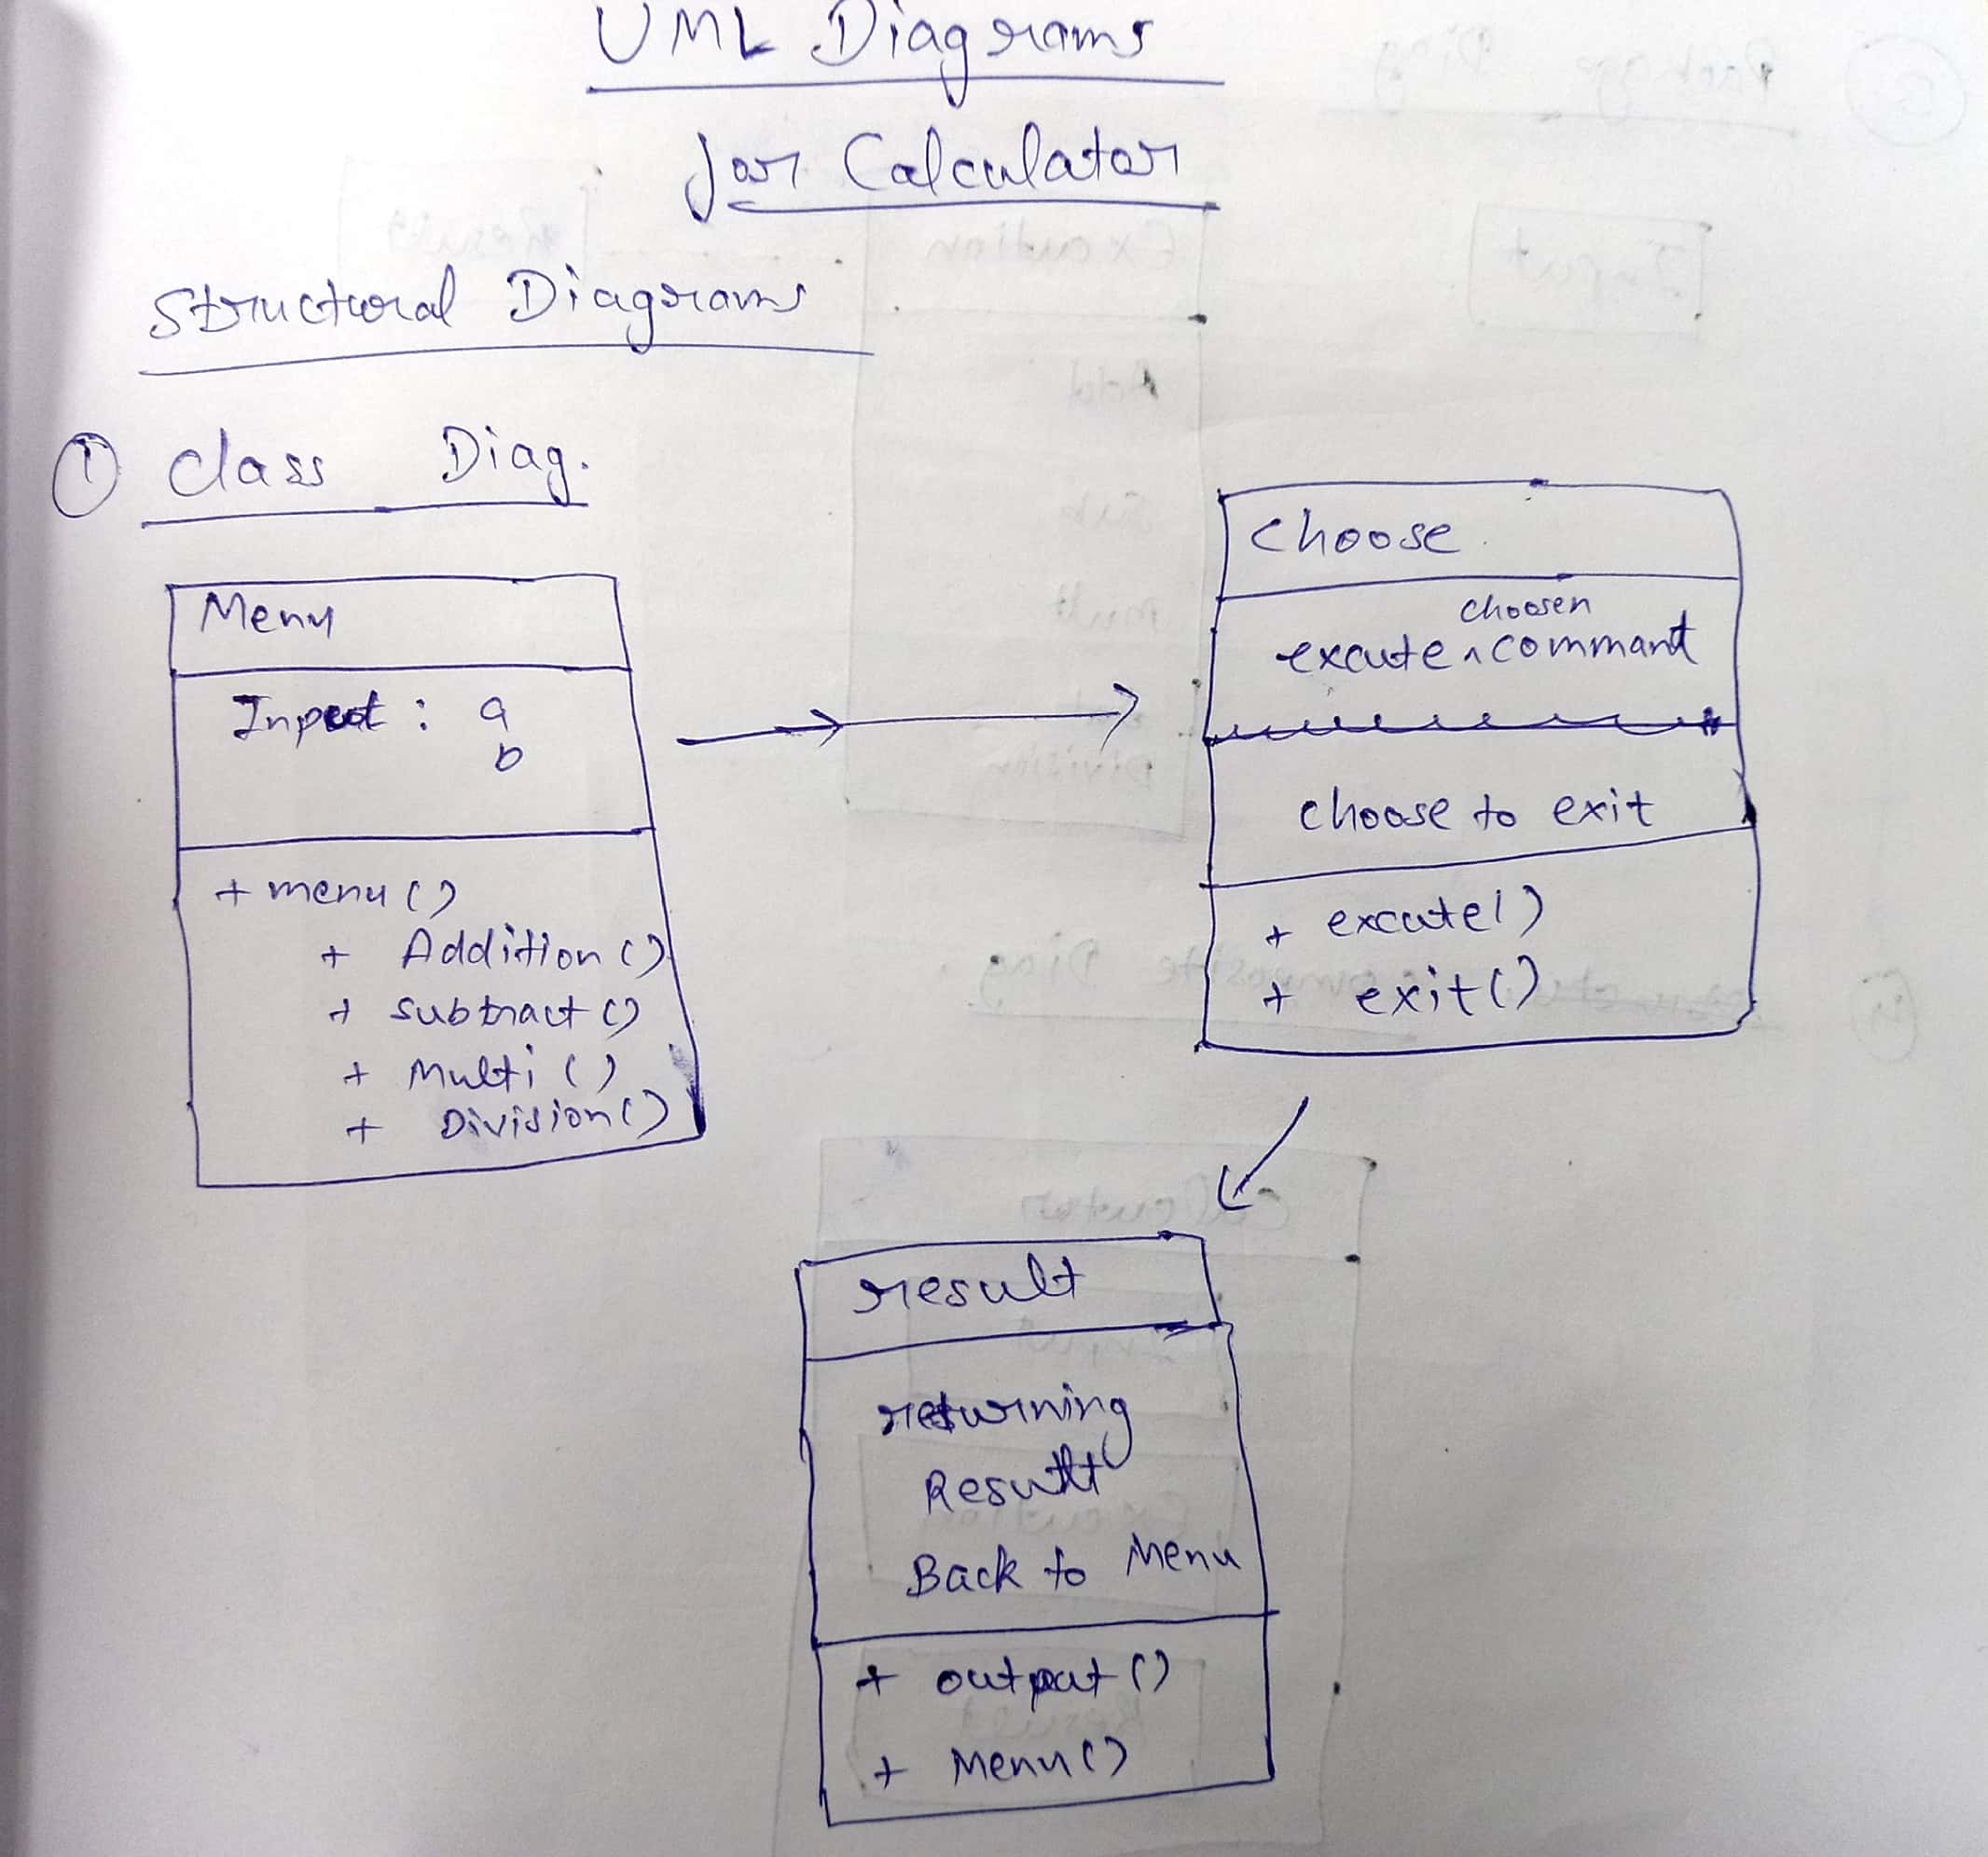 UML Diagrams
for Calculator
Structural Diagrams
① Class Diag.
Menu
Input : a
b
+ menu ()
+ Addition ()
+ Subtract ()
+ Multi ()
+ Division ()
Choose
choosen
excute ^ command
choose to exit
+ excute()
+ exit()
result
returning
Result
Back to Menu
+ output ()
+ Menu ()